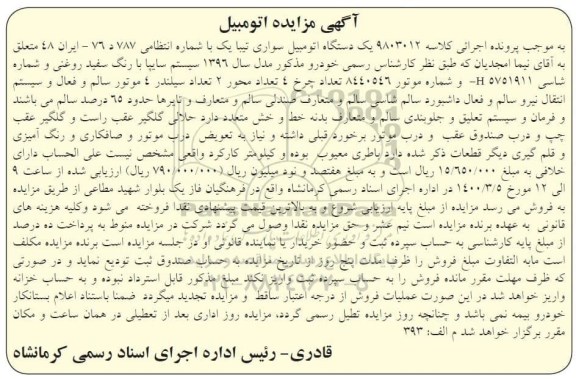 آگهی مزایده اتومبیل
به موجب پرونده اجرائی کلاسه ۹۸۰۳۰۱۲ یک دستگاه اتومبیل سواری تیبا یک با شماره انتظامی ۷۸۷ د ۷۶ - ایران ۴۸ متعلق
به آقای نیما امجدیان که طبق نظر کارشناس رسمی خودرو مذکور مدل سال ۱۳۹۶ سیستم سایپا با رنگ سفید روغنی و شماره
شاسی H- ۵۷۵۱۹۱۱ و شماره موتور ۸۴۴۰۵۴۶ تعداد چرخ ۴ تعداد محور ۲ تعداد سیلندر ۴ موتور سالم و فعال و سیستم
انتقال نیرو سالم و فعال داشبورد سالم شاسی سالم و متعارف صندلی سالم و متعارف و تایرها حدود ۶۵ درصد سالم می باشند
و فرمان و سیستم تعلیق و جلوبندی سالم و متعارف بدنه خط و خش متعدد دارد حلالی گلگیر عقب راست و گلگیر عقب
چپ و درب صندوق عقب و درب موتور برخورد قبلی داشته و نیاز به تعویض درب موتور و صافکاری و رنگ آمیزی
و قلم گیری دیگر قطعات ذکر شده دارد باطری معیوب بوده و کیلومتر کارکرد واقعی مشخص نیست علی الحساب دارای
خلافی به مبلغ ۱۵/۶۵۰/۰۰۰ ریال است و به مبلغ هفتصد و نود میلیون ریال (۷۹۰/۰۰۰/۰۰۰ ریال) ارزیابی شده از ساعت ۹
الی ۱۲ مورخ ۱۴۰۰/۳/۵ در اداره اجرای اسناد رسمی کرمانشاه واقع در فرهنگیان فاز یک بلوار شهید مطاعی از طریق مزایده
به فروش می رسد مزایده از مبلغ پایه ارزیابی شروع و به بالاترین قیمت پیشنهادی نقدا فروخته می شود وکلیه هزینه های
قانونی به عهده برنده مزایده است نیم عشر وحق مزایده نقدا وصول می گردد شرکت در مزایده منوط به پرداخت ده درصد
از مبلغ پایه کارشناسی به حساب سپرده ثبت و حضور خریدار یا نماینده قانونی او در جلسه مزایده است برنده مزایده مکلف
است مابه التفاوت مبلغ فروش را ظرف مدت پنج روز از تاریخ مزایده به حساب صندوق ثبت تودیع نماید و در صورتی
که ظرف مهلت مقرر مانده فروش را به حساب سپرده ثبت واریز نکند مبلغ مذکور قابل استرداد نبوده و به حساب خزانه
واریز خواهد شد در این صورت عملیات فروش از درجه اعتبار ساقط و مزایده تجدید میگردد ضمنا باستناد اعلام بستانکار
خودرو بیمه نمی باشد و چنانچه روز مزایده تعطیل رسمی گردد، مزایده روز اداری بعد از تعطیلی در همان ساعت و مکان
مقرر برگزار خواهد شد م الف: ۳۹۳
قادری- رئیس اداره اجرای اسناد رسمی کرمانشاه